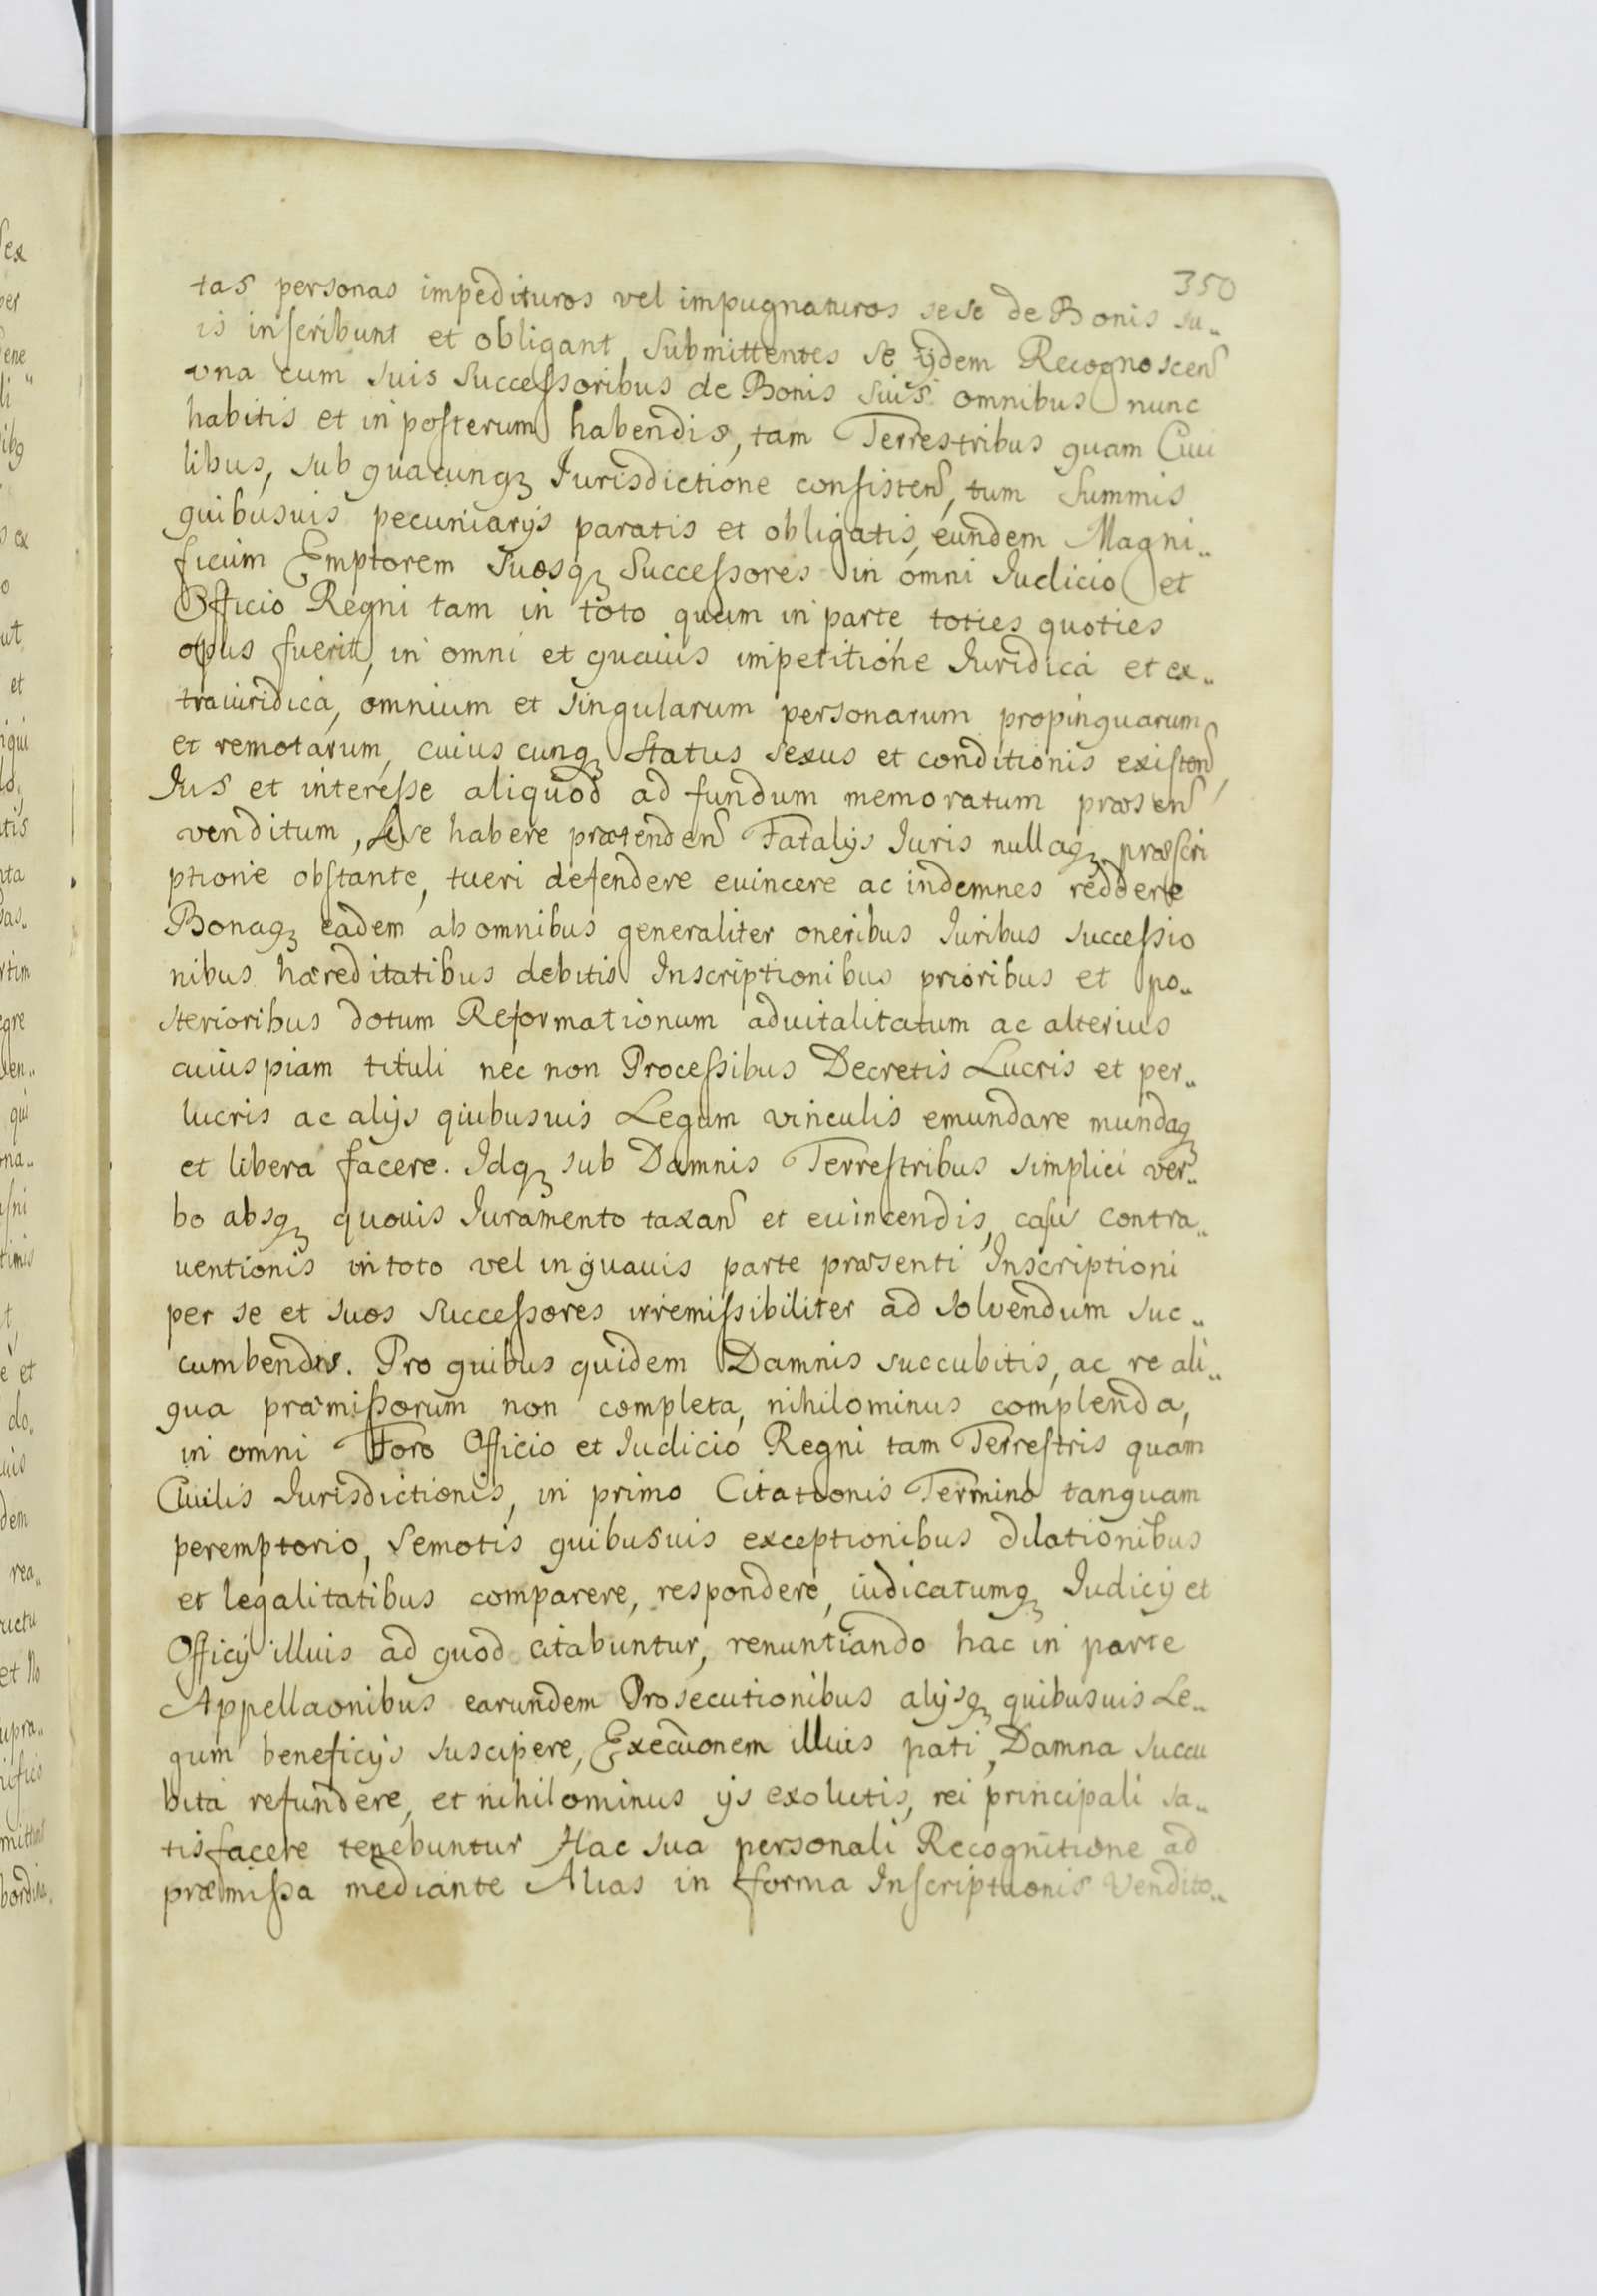 350
tas personas impedituros vel impugnaturos sese de Bonis su„
is inscribunt et obligant, submittentes se ijdem Recognoscen
vna cum suis successoribus de Bonis suis omnibus nunc
habitis et in posterum habendis, tam Terrestribus quam Ciui
libus, sub quacunq3 Jurisdictione consisten, tum summis
quibusuis pecuniarijs paratis et obligatis, eundem Magni„
ficum Emptorem suosq3 Successores in omni Judicio et
Officio Regni tam in toto quam in parte, toties quoties
opus fuerit, in omni et quauis impetitione Juridica et ex„
traiuridica, omnium et singularum personarum propinquarum
et remotarum, cuiuscunq3 status sexus et conditionis existen,
Jus et interesse aliquod ad fundum memoratum præsen
venditum, se habere prætenden Fatalijs Juris nullaq3 præscri
ptione obstante, tueri defendere euincere ac indemnes reddere
Bonaq3 eadem ab omnibus generaliter oneribus Juribus successio
nibus hæreditatibus debitis Inscriptionibus prioribus et po„
sterioribus dotum Reformationum aduitalitatum ac alterius
cuiuspiam tituli nec non Processibus Decretis Lucris et per„
lucris ac alijs quibusuis Legum vinculis emundare mundaq3
et libera facere. Idq3 sub Damnis Terrestribus simplici ver„
bo absq3 quouis Juramento taxan et euincendis, casu contra„
uentionis in toto vel in quauis parte præsenti Inscriptioni
per se et suos successores irremissibiliter ad solvendum suc„
cumbendis. Pro quibus quidem Damnis succubitis, ac re ali„
qua præmissorum non completa, nihilominus complenda,
in omni Foro Officio et Judicio Regni tam Terrestris quam
Ciuilis Jurisdictionis, in primo Citationis Termino tanquam
peremptorio, semotis quibusuis exceptionibus dilationibus
et legalitatibus comparere, respondere, iudicatumq3 Judicij et
Officij illius ad quod citabuntur, renuntiando hac in parte
Appellaonibus earundem Prosecutionibus alijsq3 quibusuis Le„
gum beneficijs suscipere, Execuonem illius pati, Damna succu
bita refundere, et nihilominus ijs exolutis, rei principali sa„
tisfacere tenebuntur Hac sua personali Recognitione ad
præmissa mediante Alias in forma Inscriptionis Vendito„